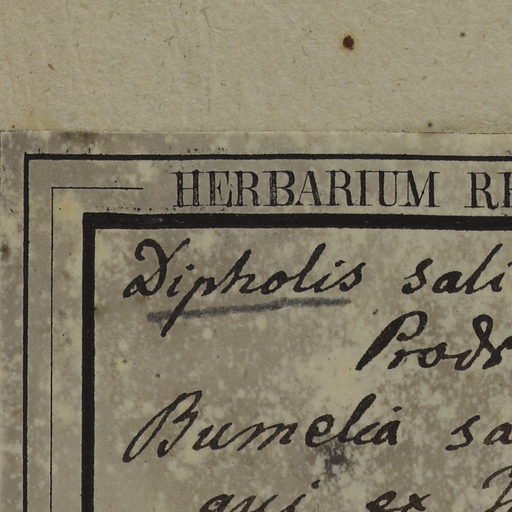 HERBARIUM RE
Dipholis sali
Prodr
Bumelia sa
qui ex